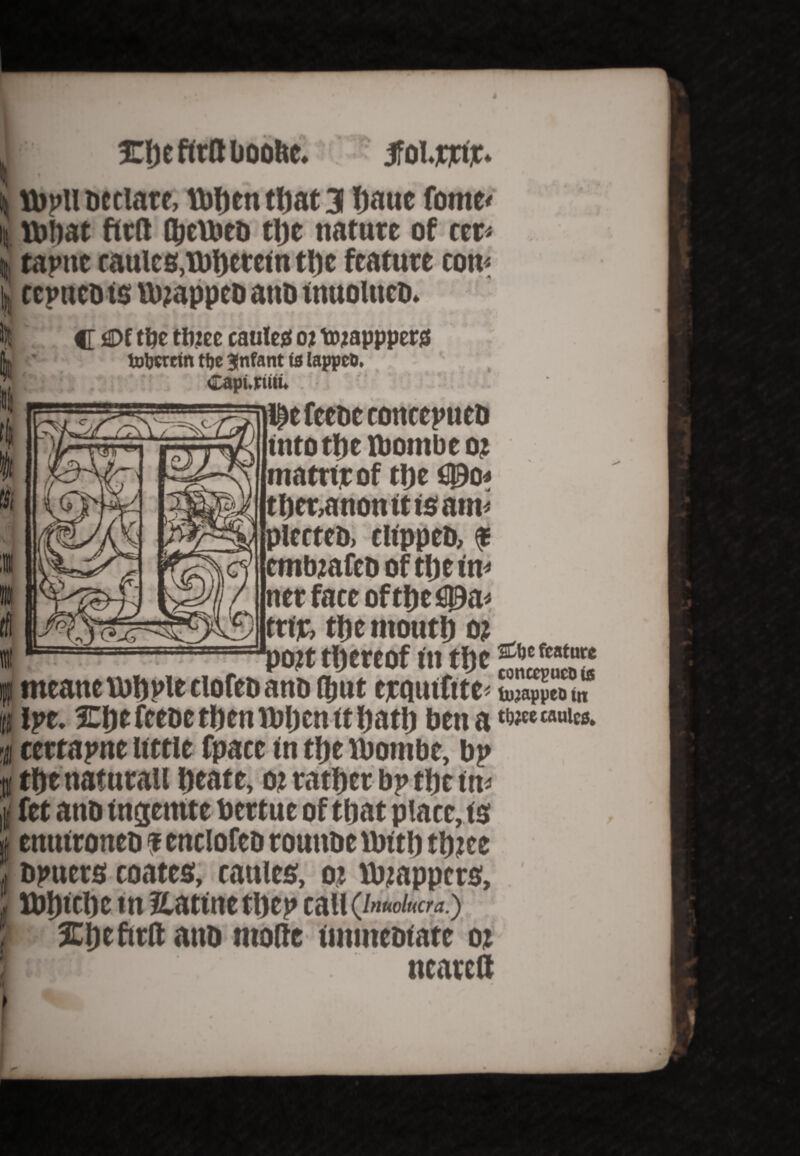 The first booke. Fol.xxix.
wyll declare, when that I haue some-
what first shewed the nature of cer-
tayne caules, wherein the feature con-
ceyued is wrapped and inuolued.
¶ Of the three caules or wrapppers
wherein the Infant is lapped.
Capi.xiiii.
THe seede conceyued
into the wombe or
matrix of the Mo-
ther, anon it is am-
plected, clipped, &
embrased of the in-
ner face of the Ma-
trix, the mouth or
port thereof in the
meane whyle closed and shut exquisite-
lye. The seede then when it hath ben a
certayne little space in the wombe, by
the naturall heate, or rather by the in-
set and ingenite vertue of that place, is
enuironed & enclosed rounde with three
dyuers coates, caules, or wrappers,
whiche in Latine they call (Inuolucra.)
The first and moste immediate or
nearest
The feature
conceyued is
wrapped in
three caules.